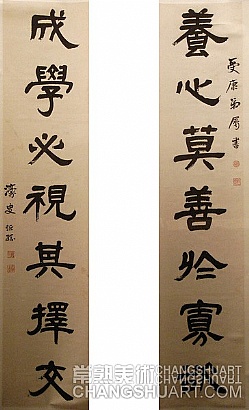 養心莫善於寡欲
受康弟屬書
成學必視其擇交
濠叟
常熟美術
CHANGSHUART
CHANGSHUART.COM